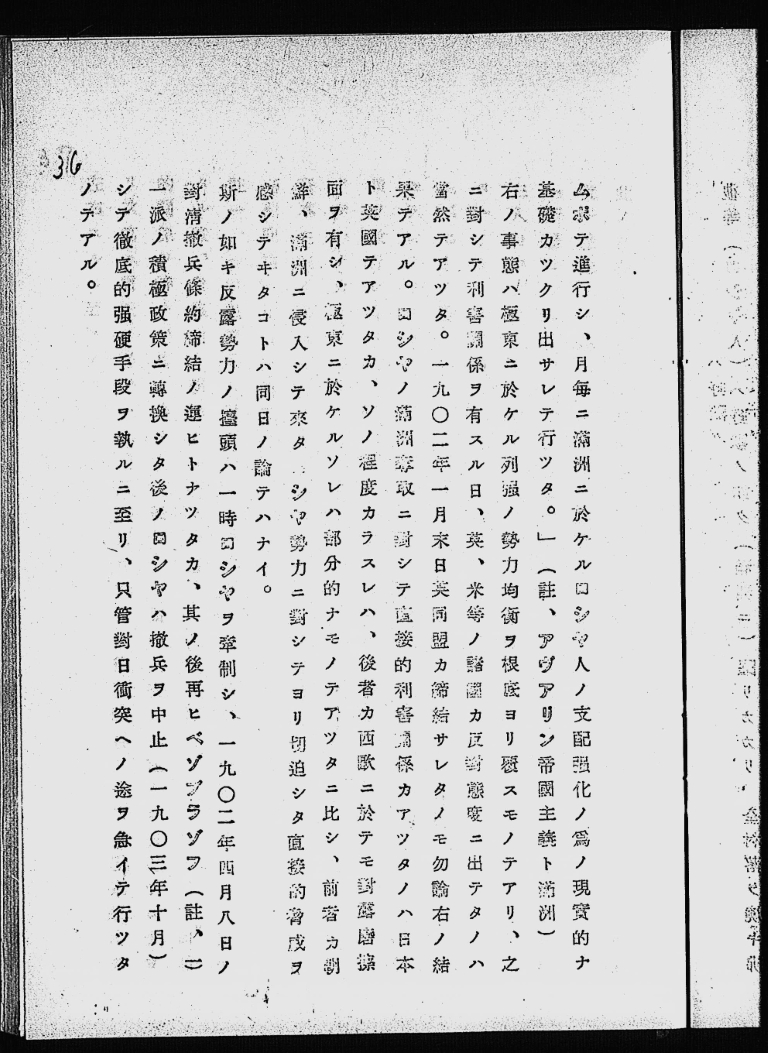 36
ムポテ進行シ、月每ニ滿洲ニ於ケルロシヤ人ノ支配强化ノ爲ノ現實的ナ
基礎カツクリ出サレテ行ツタ。」(註、アヴアリン帝國主義ト滿洲)
右ノ事態ハ極東ニ於ケル列强ノ勢力均衡ヲ根底ヨリ覆スモノテアリ、之
ニ對シテ利害關係ヲ有スル日、英、米等ノ諸國カ反對態度ニ出テタノハ
當然テアツタ。一九〇二年一月末日英同盟カ締結サレタノモ勿論右ノ結
果テアル。ロシヤノ滿洲奪取ニ對シテ直接的利害關係カアツタノハ日本
ト英國テアツタカ、ソノ程度カラスレハ、後者カ西歐ニ於テモ對露磨擦
面ヲ有シ、極東ニ於ケルソレハ部分的ナモノテアツタニ比シ、前者カ朝
鮮、滿洲ニ侵入シテ來タロシヤ勢力ニ對シテヨリ切迫シタ直接的脅威ヲ
感シテヰタコトハ同日ノ論テハナイ。
斯ノ如キ反露勢力ノ擡頭ハ一時ロシヤヲ牽制シ、一九〇二年四月八日ノ
對清撤兵條約締結ノ運ヒトナツタカ、其ノ後再ヒベゾブラゾフ(註、二)
一派ノ積極政策ニ轉換シタ後ノロシヤハ撤兵ヲ中止(一九〇三年十月)
シテ徹底的强硬手段ヲ執ルニ至リ、只管對日衝突ヘノ途ヲ急イテ行ツタ
ノテアル。